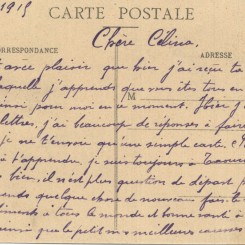 1915
CARTE POSTALE
CORRESPONDANCE
ADRESSE
Chère Célina,
avec plaisir que hier j'ai reçu ta
laquelle j'apprends que vous êtes tous en
M
pour moi en ce moment. Hier j'ai
lettres, j'ai beaucoup de réponses à faire
je ne t'envoie que une simple carte.
à t'apprendre, je suis toujours à
bien, il n'est plus question de départ
quelque chose de nouveau fais-le
à tous le monde et bonne santé à
ainsi que le petit mes meilleures caresses